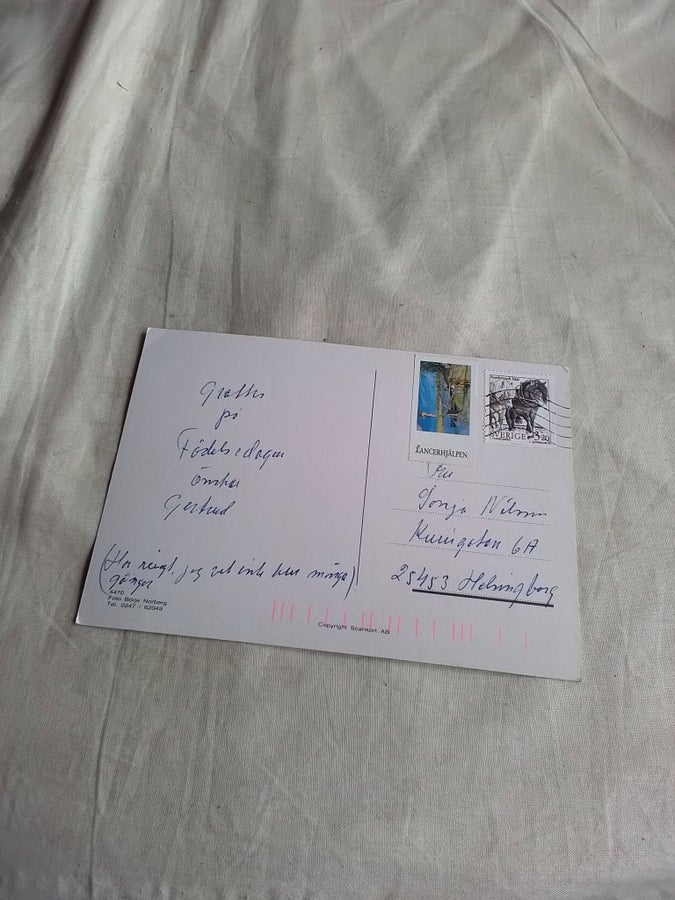 Grattis
på
Födelsedagen
önskar
Gertrud
(Har ringt, jag vet inte hur många)
gånger
4470
Foto Börje Norberg
Tel. 0247 / 62049
Copyright Scankort AB
CANCERHJÄLPEN
SVERIGE 3.20
Fru
Sonja Nilsson
Kuringatan 6A
25453 Helsingborg